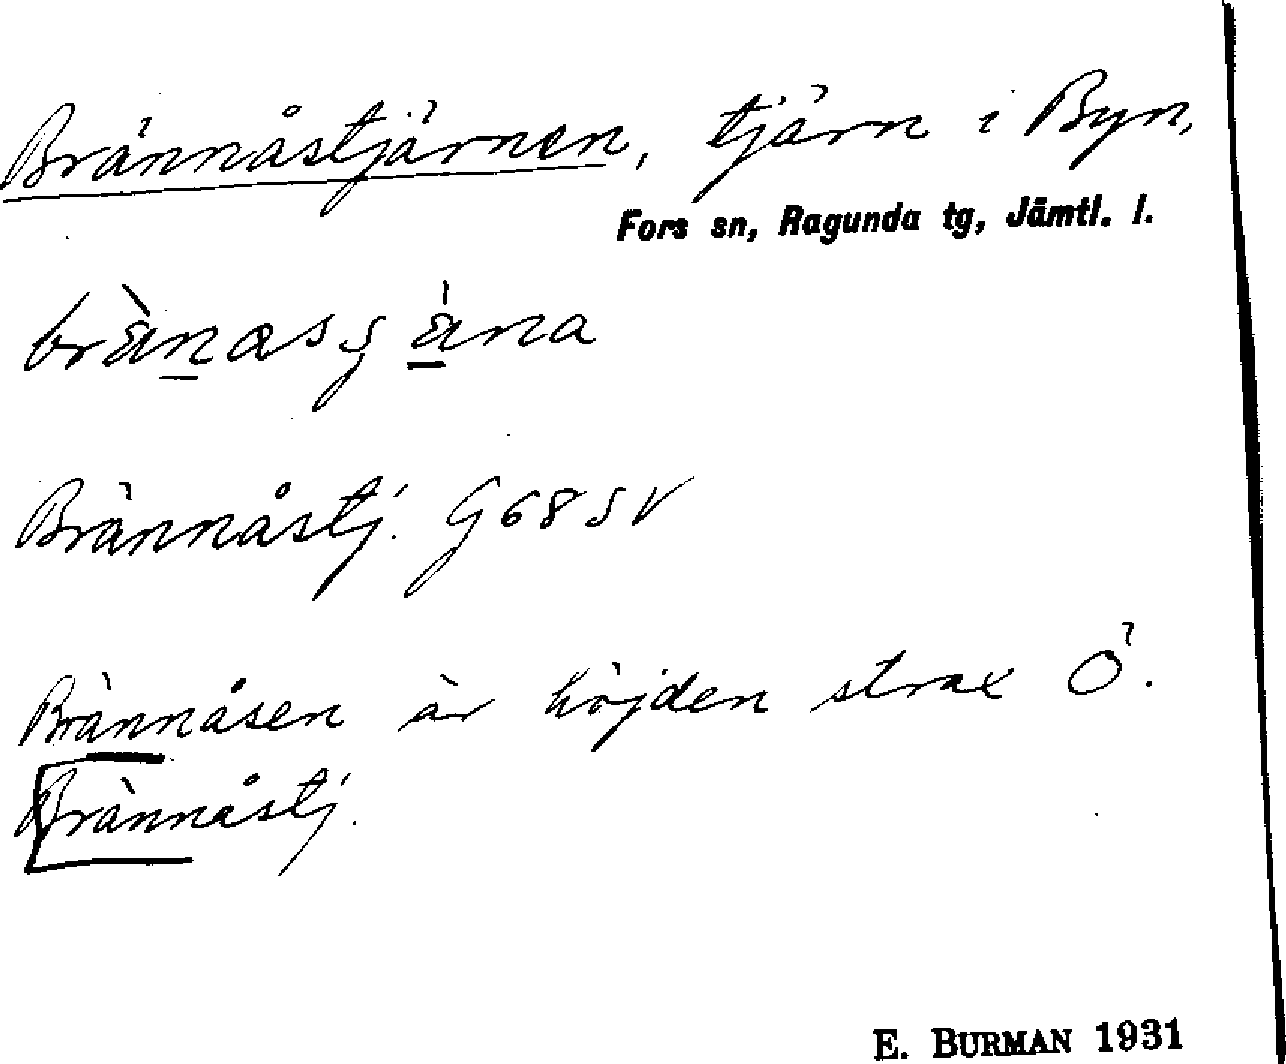 Brännåstjärnen, tjärn i Byn,
Fors sn, Ragunda tg, Jämtl. l.
Brännåstj. G68SV
Brännåsen är höjden strax Ö.
Brännåstj.
E. BURMAN 1931